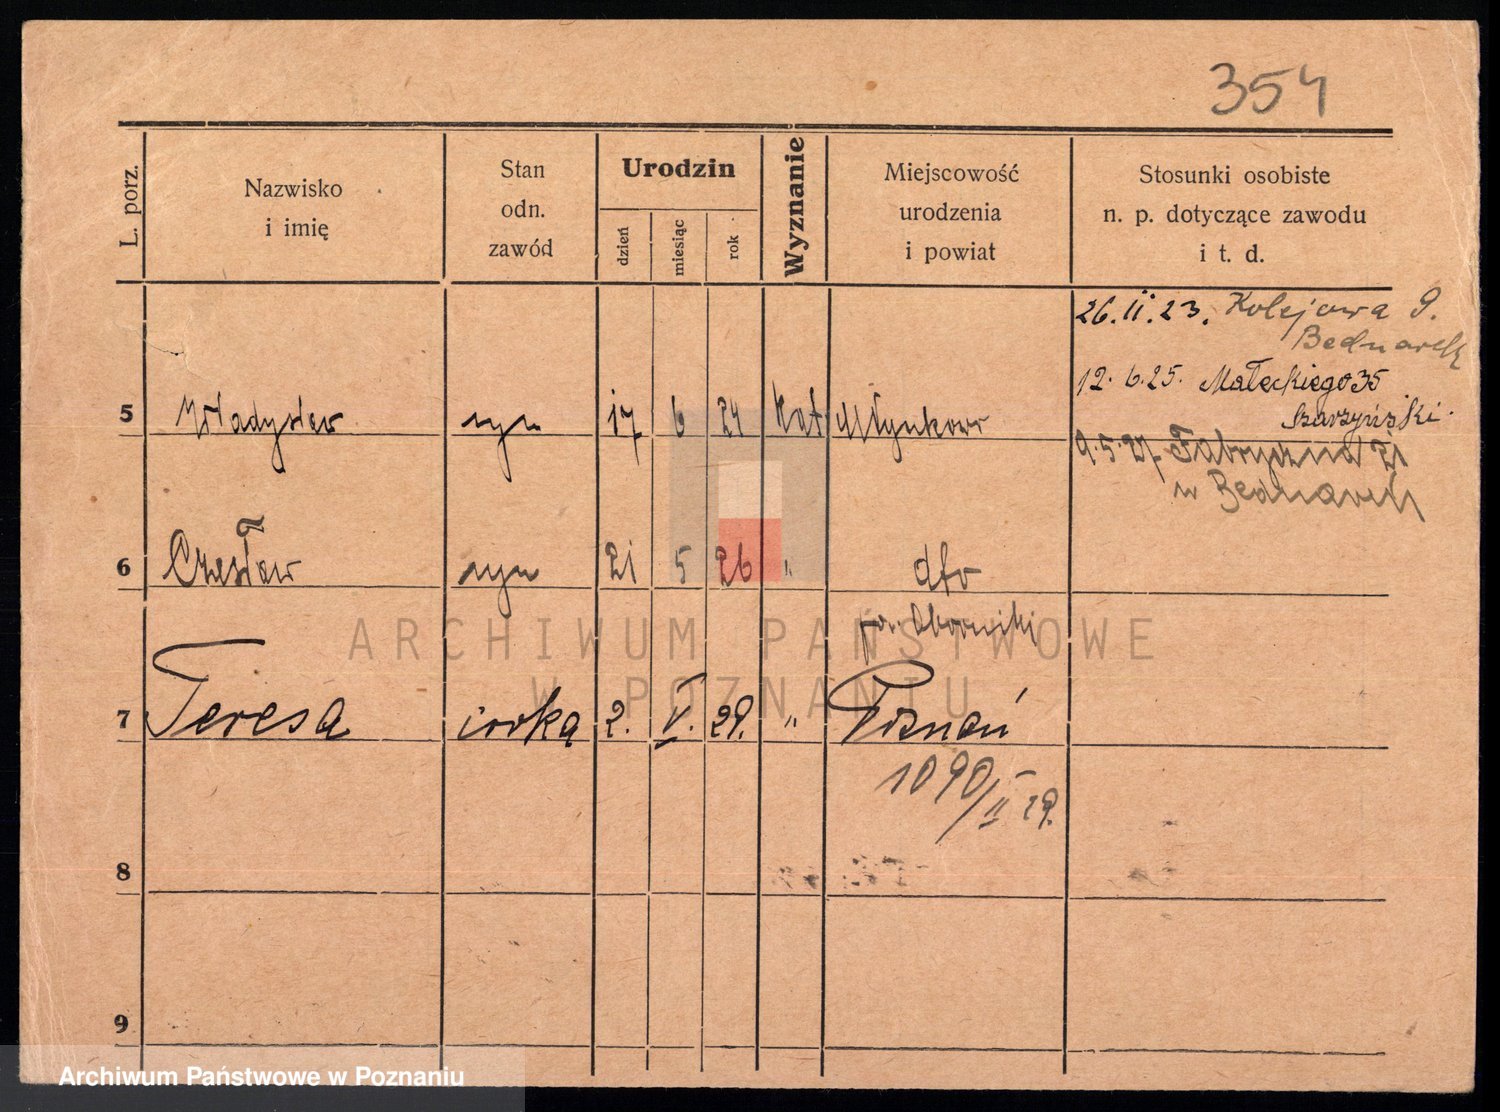 354
L. porz.
Nazwisko
i imię
Stan
odn.
zawód
Urodzin
dzień
miesiąc
rok
Wyznanie
Miejscowość
urodzenia
i powiat
Stosunki osobiste
n. p. dotyczące zawodu
i t. d.
26.II.23. Kolejowa 9.
Bednarek
12.6.25. Małeckiego 35
Szarzyński
9.5.27 Fabryczna 21
w Bednarek
5 Władysław syn 17 6 24 kat Młynkowo
6 Czesław syn 21 5 26 " dto
pow. Oborniki
7 Teresa córka 2. V. 29. " Poznań
1090/II 29.
8
9
ARCHIWUM PAŃSTWOWE
W POZNANIU
Archiwum Państwowe w Poznaniu